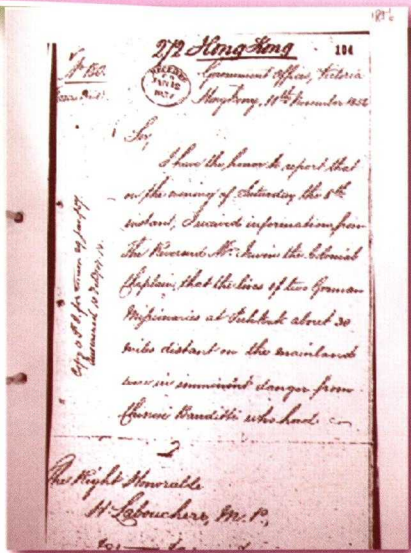 272 Hong Kong
104
No. 180.
RECEIVED
Government Offices, Victoria
Hongkong, 11th November 1856
Sir,
I have the honor to report that
on the evening of Saturday the 8th
instant, I received information from
The Reverend Mr. Irwin the Colonial
Chaplain, that the lives of two German
Missionaries at about 30
miles distant on the mainland
were in imminent danger from
Chinese Banditti who had
The Right Honorable
H Labouchere, M. P.,